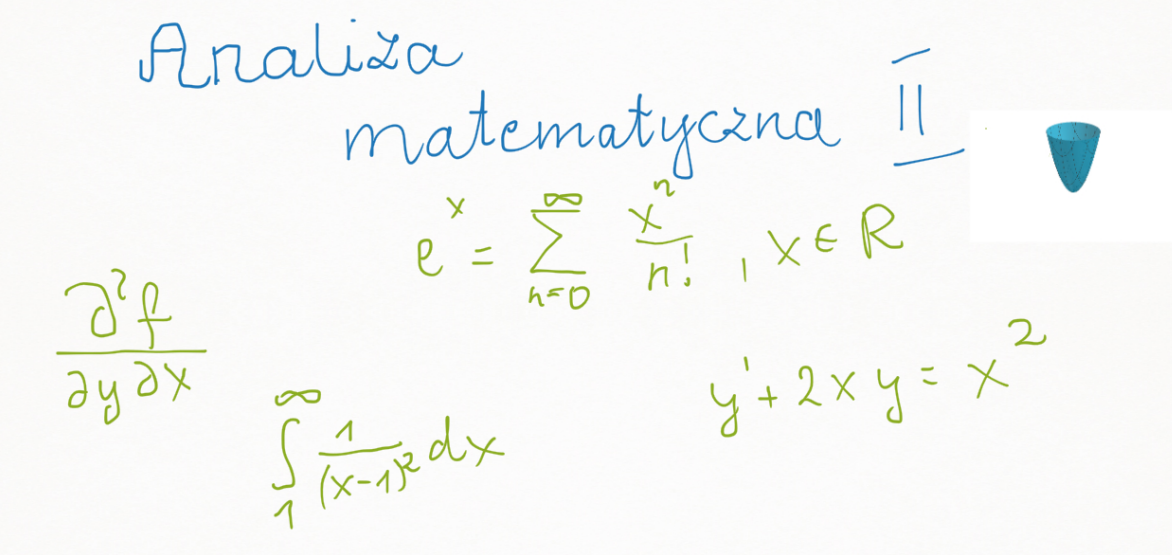 Analiza
matematyczna II
e^x = ∑_{n=0}^{∞} x^n/n! , x ∈ R
∂²f/∂y∂x
y' + 2xy = x²
∫_1^∞ 1/(x-1)² dx